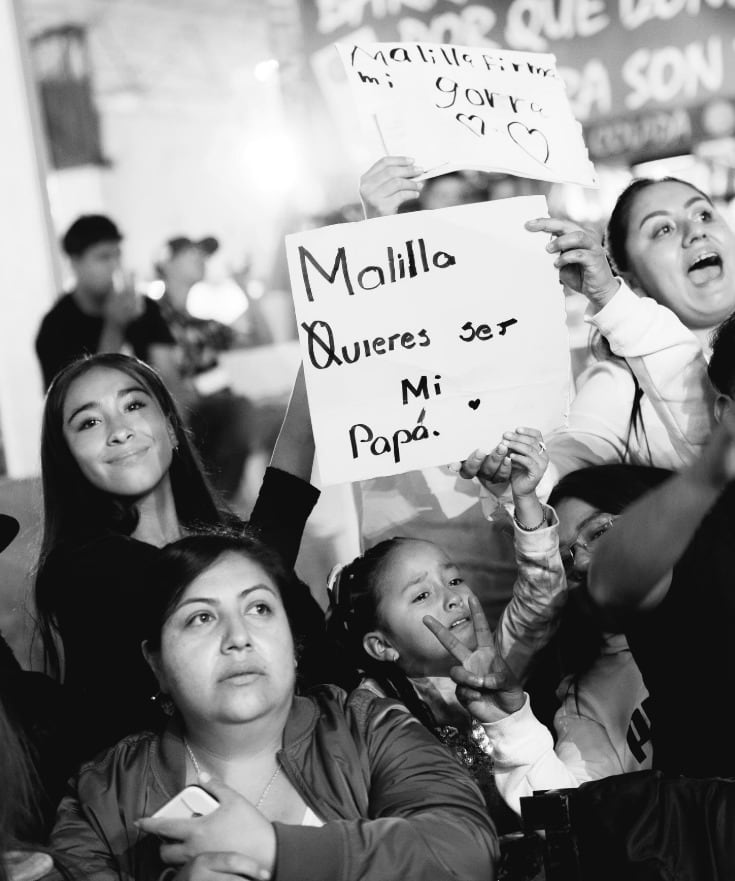 POR QUE
SON
Malilla Firma
mi gorra
Malilla
Quieres ser
Mi
Papá.